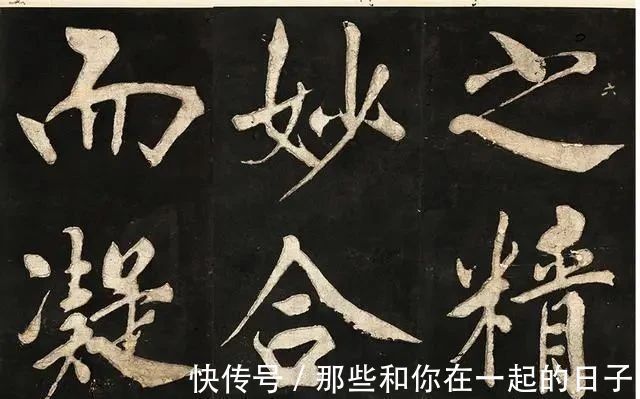 之精
妙合
而凝
快传号/那些和你在一起的日子